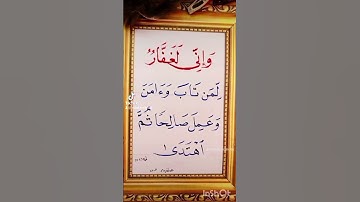 وَإِنِّي لَغَفَّارٌ
لِّمَن تَابَ وَءَامَنَ
وَعَمِلَ صَالِحًا ثُمَّ
ٱهْتَدَىٰ
InShot